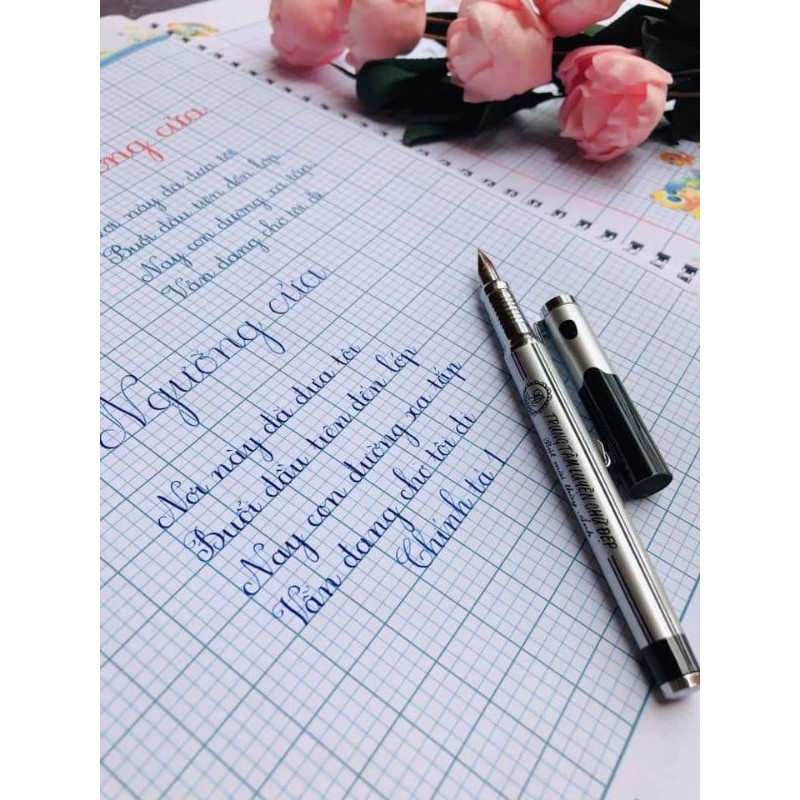 ng cửa
này đã đưa tôi
Buổi đầu tiên đến lớp
Nay con đường xa tắp
Vẫn đang chờ tôi đi
Ngưỡng cửa
Nơi này đã đưa tôi
Buổi đầu tiên đến lớp
Nay con đường xa tắp
Vẫn đang chờ tôi đi
Chính tả
TRUNG TÂM LUYỆN CHỮ ĐẸP
Bút mài thầy Ánh